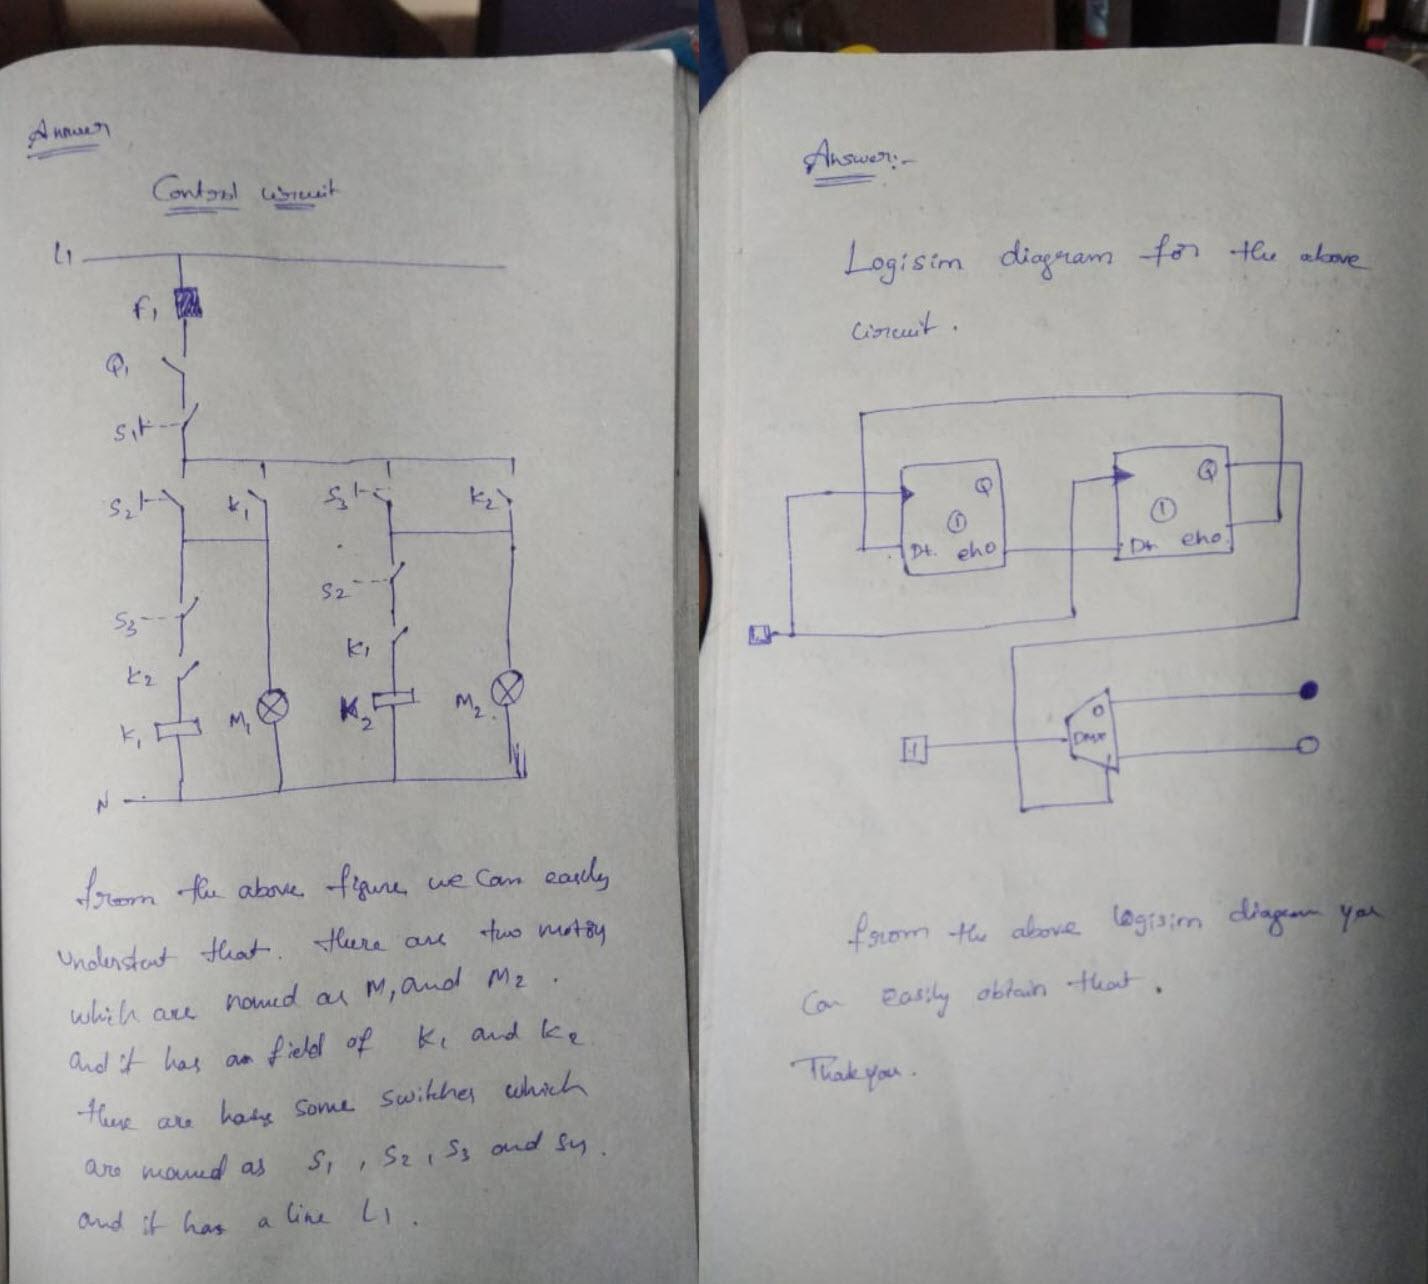 Answer
Control circuit
L1
F1
Q1
S1
S2
K1
S3
K2
S2
S3
K1
K2
K1
M1
K2
M2
N
from the above figure we can easily
understat that. there are two motoy
which are named as M1 and M2.
and it has an field of K1 and K2
there are have some switches which
are named as S1, S2, S3 and S4.
and it has a line L1.
Answer:-
Logisim diagram for the above
circuit.
Q
Q
1
1
D+. eno
D+ eno
1
0
Dmx
from the above logisim diagram you
can easily obtain that.
Thakyou.